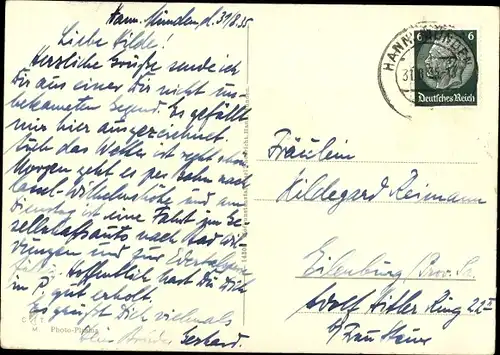 Hann. Münden, d. 31/8.35
Liebe Hilde!
Herzliche Grüße sende ich
Dir aus einer Dir nicht un-
bekannten Gegend. Es gefällt
mir hier ausgezeichnet.
Auch das Wetter ist recht
Morgen geht es per Bahn nach
Kassel-Wilhelmshöhe und am
Dienstag ist eine Fahrt im Ge-
sellschaftsauto nach Bad Wil-
dungen und zur Edertalsperre
Hoffentlich hast Du Dich
in P. gut erholt.
Es grüßt Dich vielmals
Dein Bruder Gerhard.
Photo-Photbig
HANN. MÜNDEN
6 6
Deutsches Reich
Fräulein
Hildegard Reimann
Eilenburg/Prov. Sa.
Adolf Hitler Ring 22
b/Frau